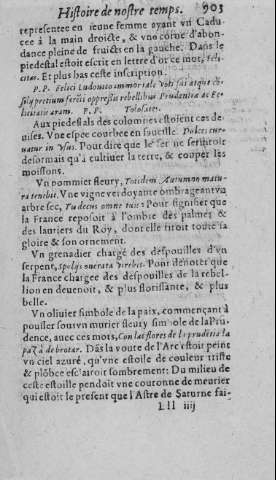 Histoire de nostre temps. 903
representee en ieune femme ayant vn Cadu-
cee à la main droicte, & vne corne d'abon-
dance pleine de fruicts en la gauche. Dans le
piedestal estoit escrit en lettre d'or ce mot, Feli-
citas. Et plus bas ceste inscription.
P. P. Felici Ludouico immortale Voti sui atque con-
silij pretium feriis oppressis rebellibus Prudentiæ ac Fe-
licitatis aram. P. P. Tolosates.
Aux piedestals des colomnes estoient ces de-
uises. Vne espee courbee en faucille. Dulces cur-
uatur in Vsus. Pour dire que le fer ne seruiroit
desormais qu'à cultiuer la terre, & coupper les
moissons.
Vn pommier fleury, Totidem Autumno matu-
ra tenebit. Vne vigne verdoyante ombrageant vn
arbre sec, Tu decus omne tuis: Pour signifier que
la France reposoit à l'ombre des palmes &
des lauriers du Roy, dont elle tiroit toute sa
gloire & son ornement.
Vn grenadier chargé des despouilles d'vn
serpent, Spolijs onerata virebit. Pour denoter que
la France chargee des despouilles de la rebel-
lion en deuenoit, & plus florissante, & plus
belle.
Vn oliuier simbole de la paix, commençant à
pousser soubs vn murier fleury simbole de la Pru-
dence, auec ces mots, Con las flores de la prudētia la
paz à de brotar. Dās la voute de l'Arc estoit peint
vn ciel azuré, qu'vne estoile de couleur triste
& plōbee esclairoit sombrement: Du milieu de
ceste estoille pendoit vne couronne de meurier
qui estoit le present que l'Astre de Saturne fai-
LII iiij